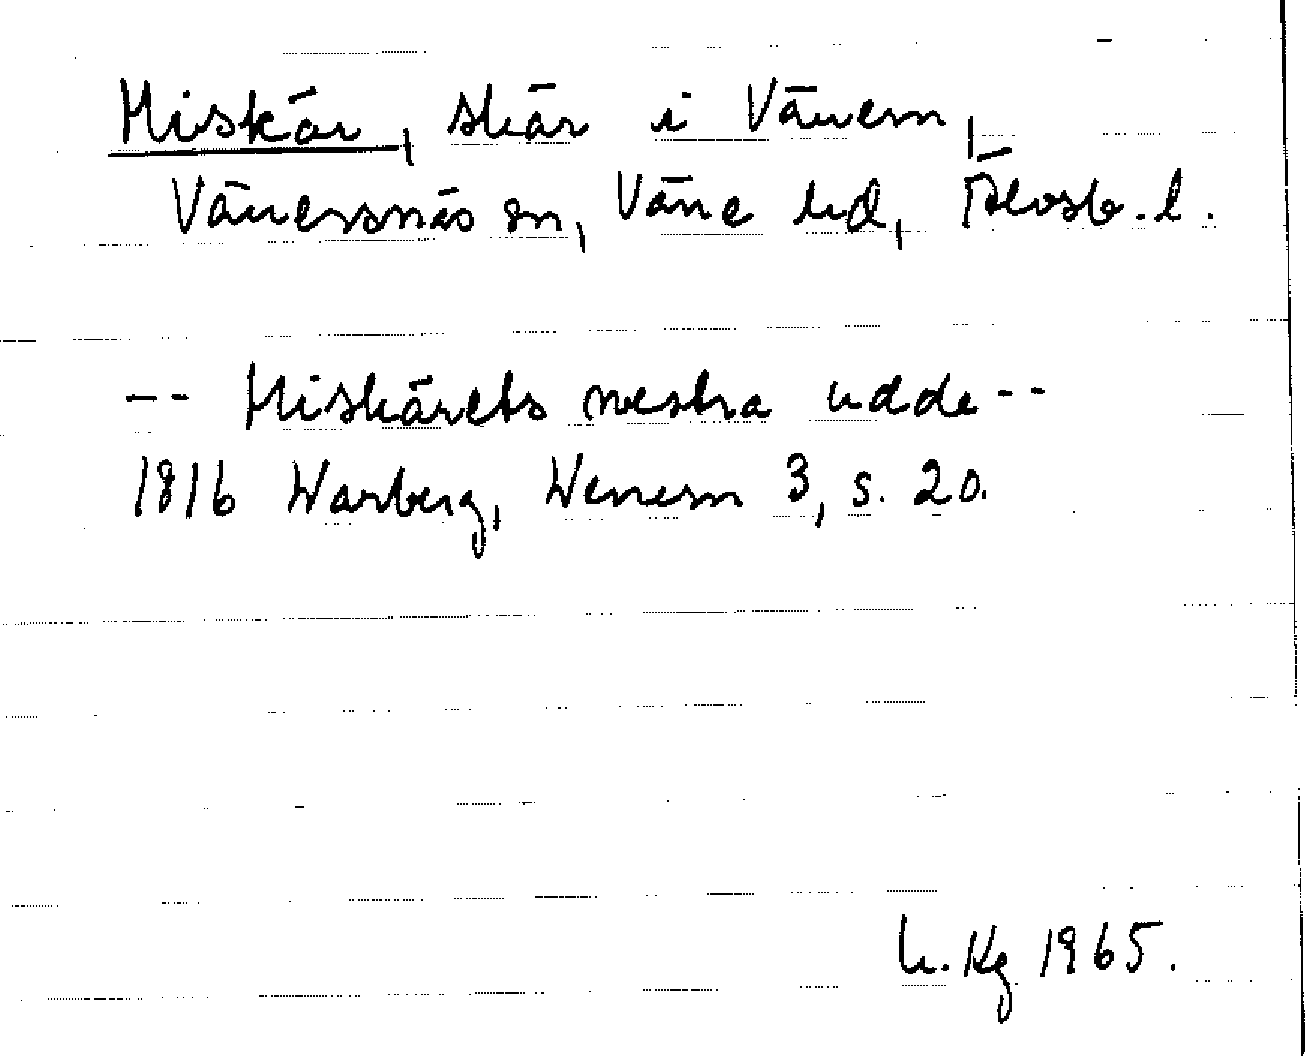 Hiskär, skär i Vänern,
Vänersnäs sn, Väne hd, Älvsb. l.
-- Hiskärets westra udde --
1816 Warberg, Wenern 3, s. 20.
Kg 1965.